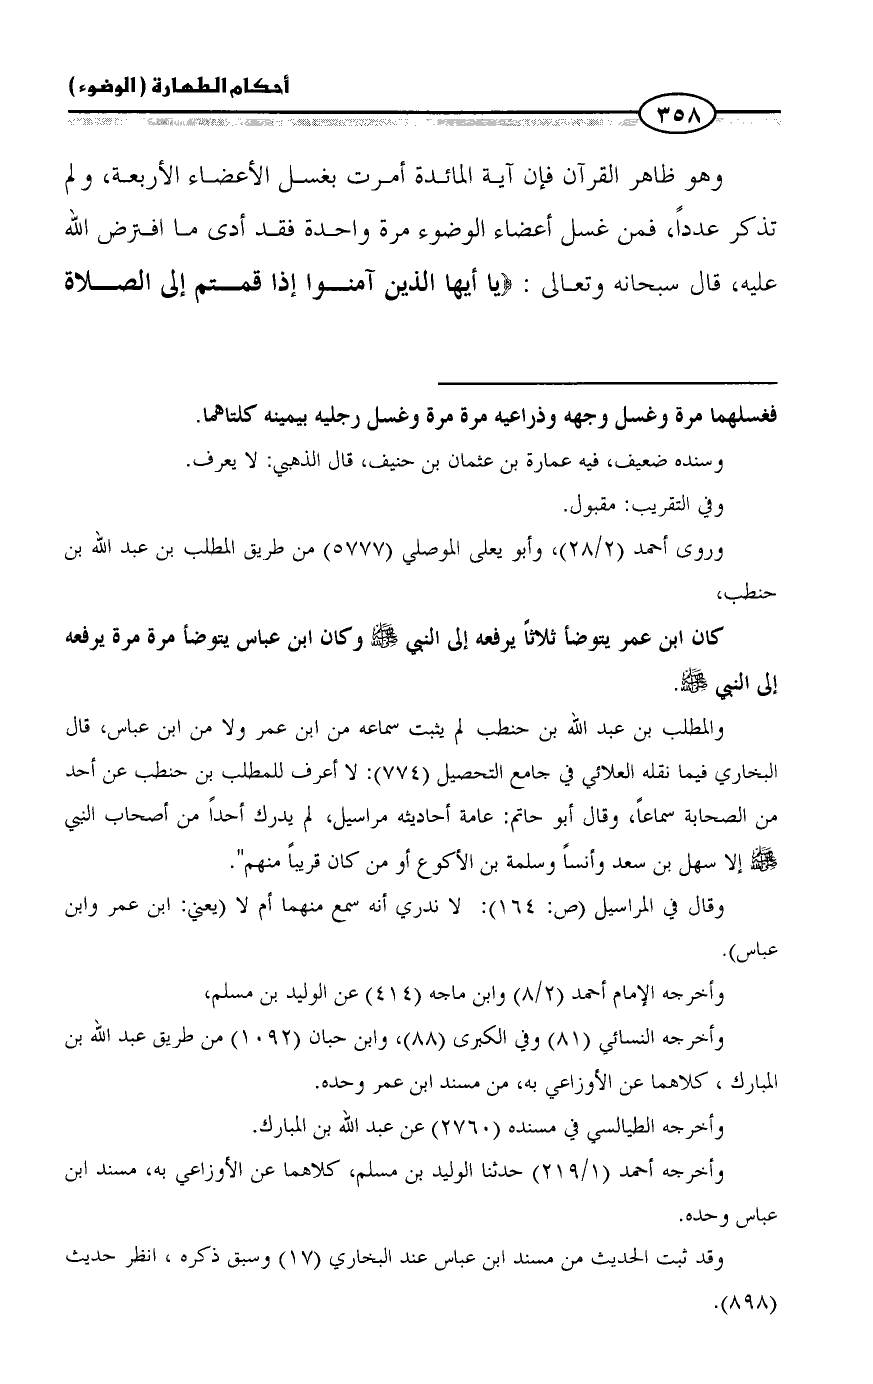 أحكام الطهارة (الوضوء)
٣٥٨
وهو ظاهر القرآن فإن آية المائدة أمرت بغسل الأعضاء الأربعة، ولم
تذكر عدداً، فمن غسل أعضاء الوضوء مرة واحدة فقد أدى ما افترض الله
عليه، قال سبحانه وتعالى : ﴿يا أيها الذين آمنوا إذا قمتم إلى الصلاة
فغسلهما مرة وغسل وجهه وذراعيه مرة مرة وغسل رجليه بيمينه كلتاهما.
وسنده ضعيف، فيه عمارة بن عثمان بن حنيف، قال الذهبي: لا يعرف.
وفي التقريب: مقبول.
وروى أحمد (٢٨/٢)، وأبو يعلى الموصلي (٥٧٧٧) من طريق المطلب بن عبد الله بن
حنطب،
كان ابن عمر يتوضأ ثلاثاً يرفعه إلى النبي ﷺ وكان ابن عباس يتوضأ مرة مرة يرفعه
إلى النبي ﷺ.
والمطلب بن عبد الله بن حنطب لم يثبت سماعه من ابن عمر ولا من ابن عباس، قال
البخاري فيما نقله العلائي في جامع التحصيل (٧٧٤): لا أعرف للمطلب بن حنطب عن أحد
من الصحابة سماعاً، وقال أبو حاتم: عامة أحاديثه مراسيل، لم يدرك أحداً من أصحاب النبي
ﷺ إلا سهل بن سعد وأنساً وسلمة بن الأكوع أو من كان قريباً منهم".
وقال في المراسيل (ص: ١٦٤): لا ندري أنه سمع منهما أم لا (يعني: ابن عمر وابن
عباس).
وأخرجه الإمام أحمد (٨/٢) وابن ماجه (٤١٤) عن الوليد بن مسلم،
وأخرجه النسائي (٨١) وفي الكبرى (٨٨)، وابن حبان (١٠٩٢) من طريق عبد الله بن
المبارك ، كلاهما عن الأوزاعي به، من مسند ابن عمر وحده.
وأخرجه الطيالسي في مسنده (٢٧٦٠) عن عبد الله بن المبارك.
وأخرجه أحمد (٢١٩/١) حدثنا الوليد بن مسلم، كلاهما عن الأوزاعي به، مسند ابن
عباس وحده.
وقد ثبت الحديث من مسند ابن عباس عند البخاري (١٧) وسبق ذكره ، انظر حديث
(٨٩٨).